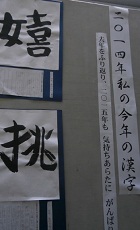 二〇一四年私の今年の漢字
去年をふり返り、二〇一五年も 気持ちあらたに がんばり
嬉
挑